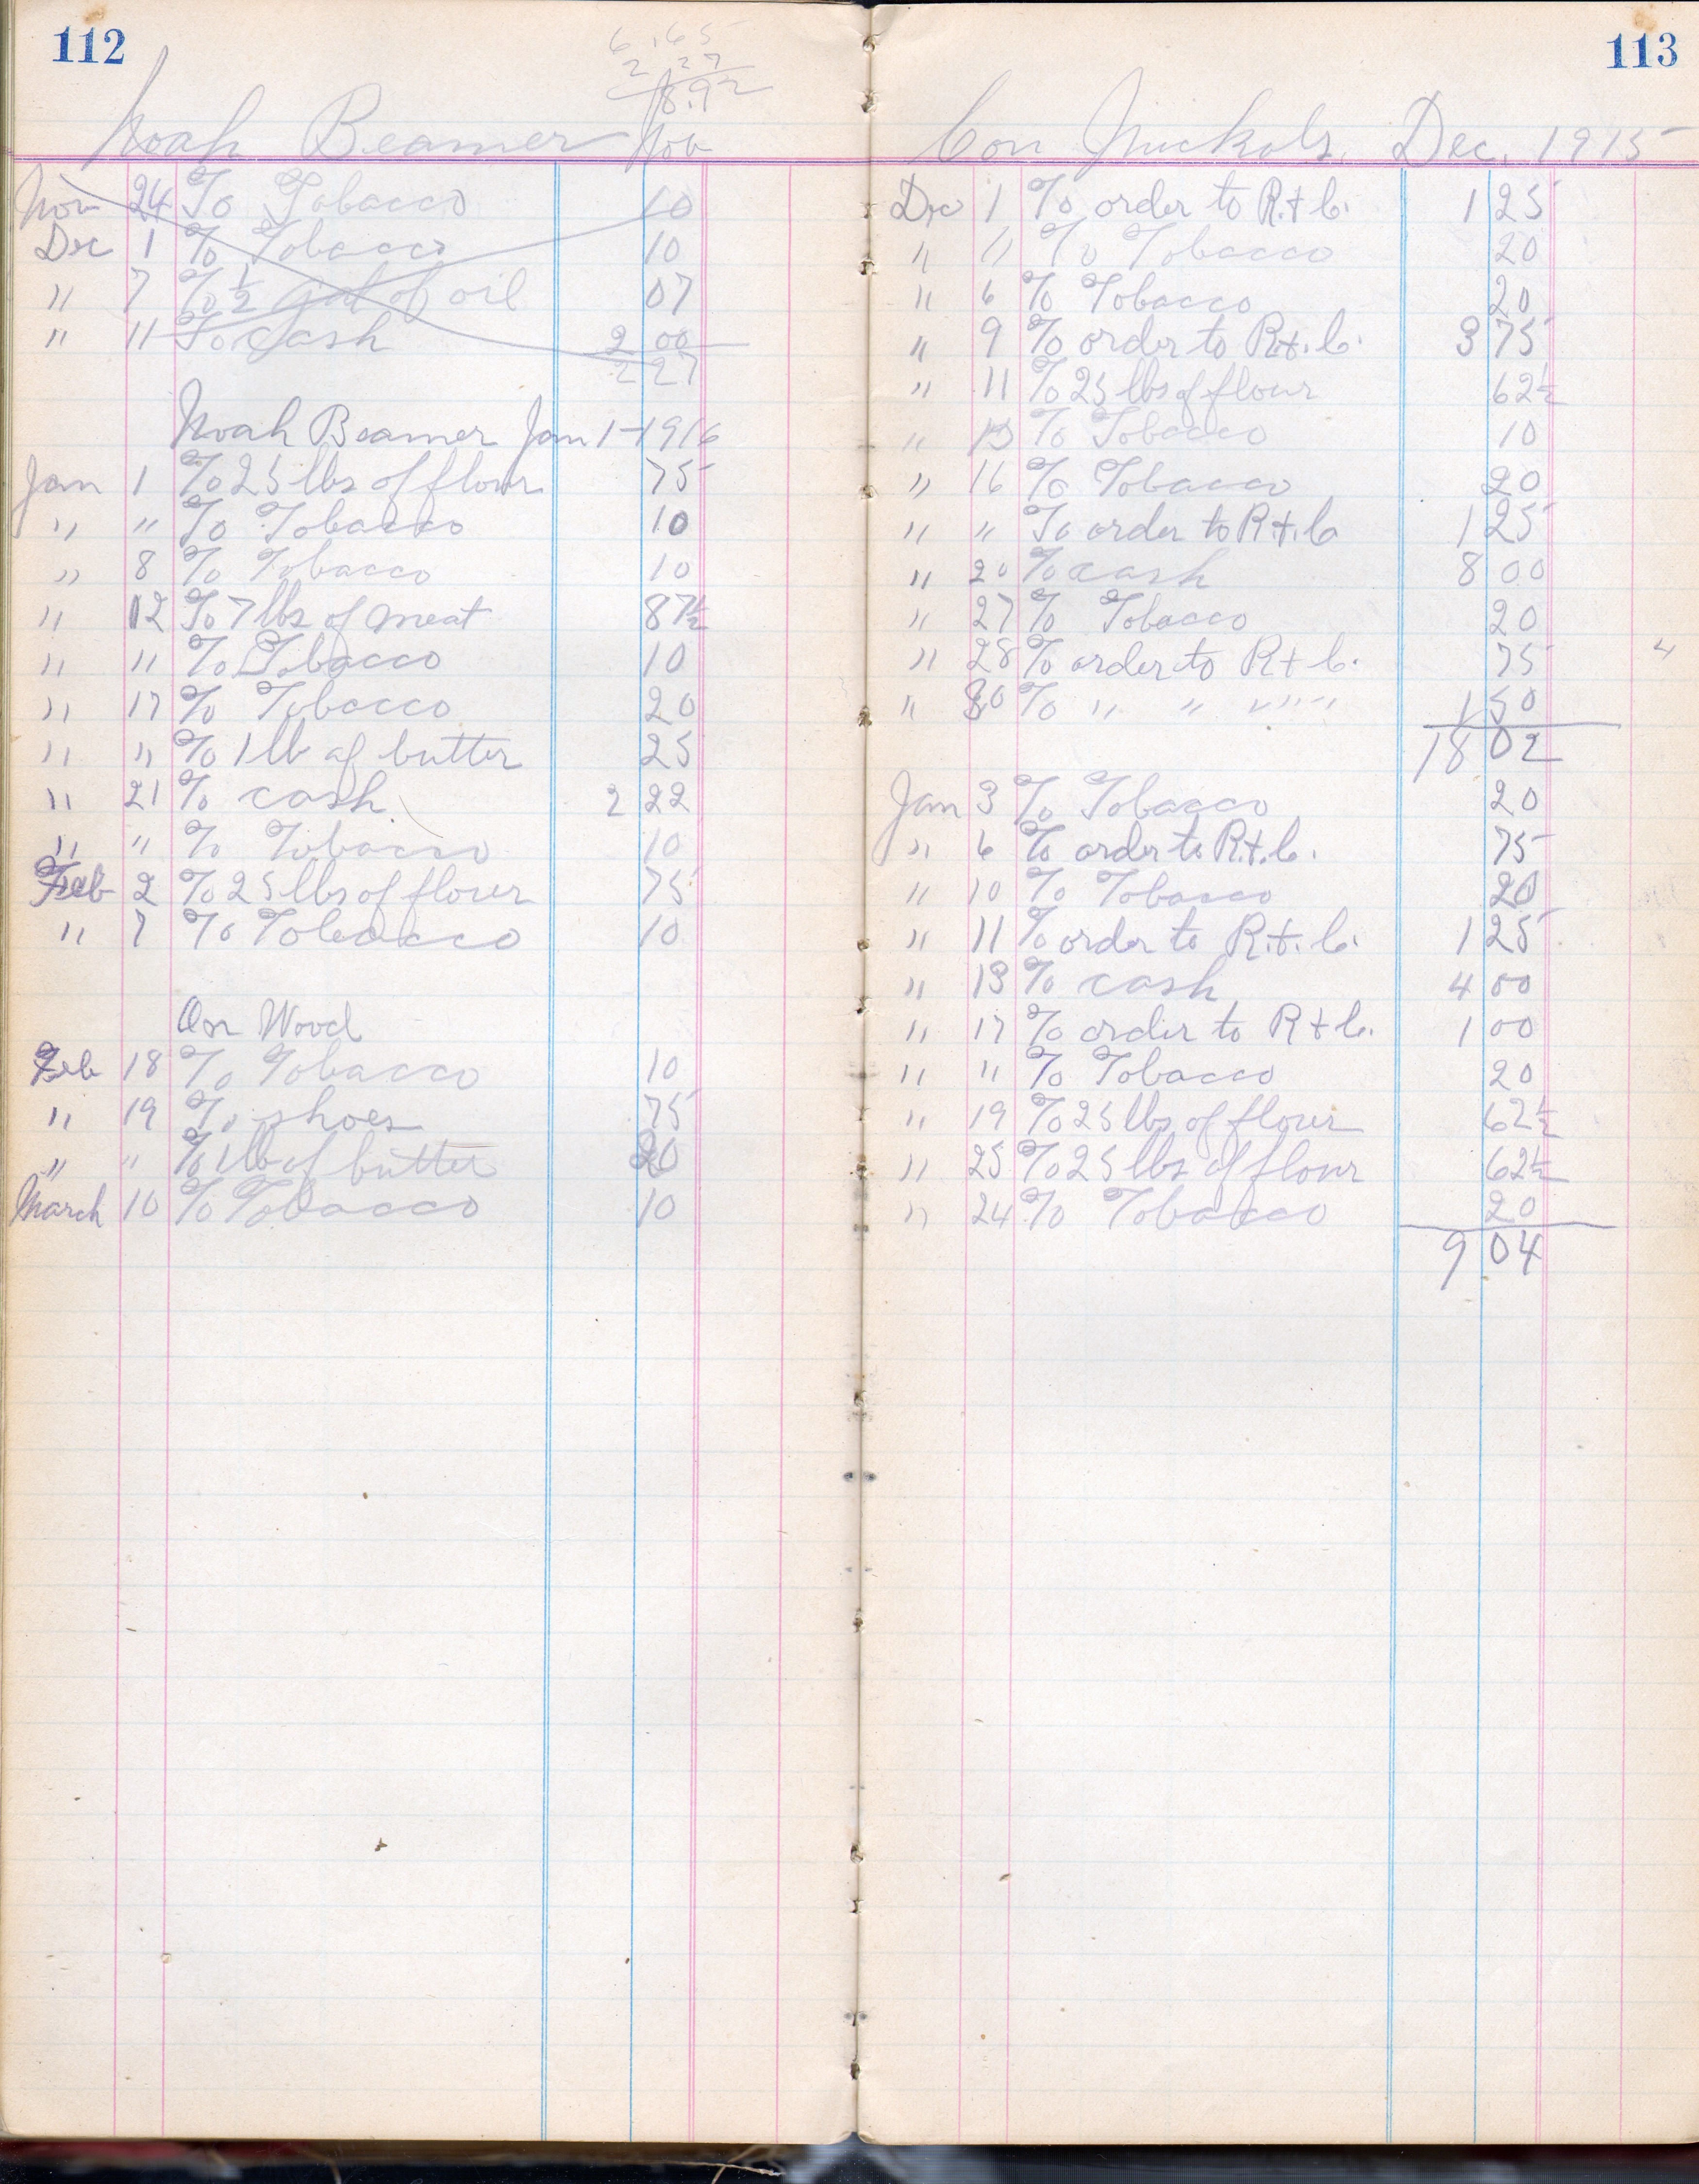 112
6.65
2 27
8.92
Noah Beamer Nov
Nov 24 To Tobacco 10
Dec 1 To Tobacco 10
" 7 To 1/2 gal of oil 07
" 11 To cash 2 00
2 27
Noah Beamer Jan 1-1916
Jan 1 To 25 lbs of flour 75
" " To Tobacco 10
" 8 To Tobacco 10
" 12 To 7 lbs of meat 87 1/2
" " To Tobacco 10
" 17 To Tobacco 20
" " To 1 lb of butter 25
" 21 To cash 2 22
" " To Tobacco 10
Feb 2 To 25 lbs of flour 75
" 7 To Tobacco 10
On Wood
Feb 18 To Tobacco 10
" 19 To shoes 75
" " To 1 lb of butter 20
March 10 To Tobacco 10
113
Con Nuckols, Dec. 1915
Dec 1 To order to R.+C. 1 25
" " To Tobacco 20
" 6 To Tobacco 20
" 9 To order to R.+.C. 3 75
" 11 To 25 lbs of flour 62 1/2
" 13 To Tobacco 10
" 16 To Tobacco 20
" " To order to R.+.C 1 25
" 20 To cash 8 00
" 27 To Tobacco 20
" 28 To order to R+C. 75
" 30 To " " " " " 1 50
18 02
Jan 3 To Tobacco 20
" 6 To order to R.+.C. 75
" 10 To Tobacco 20
" 11 To order to R.+.C. 1 25
" 13 To cash 4 00
" 17 To order to R+C. 1 00
" " To Tobacco 20
" 19 To 25 lbs of flour 62 1/2
" 25 To 25 lbs of flour 62 1/2
" 24 To Tobacco 20
9 04